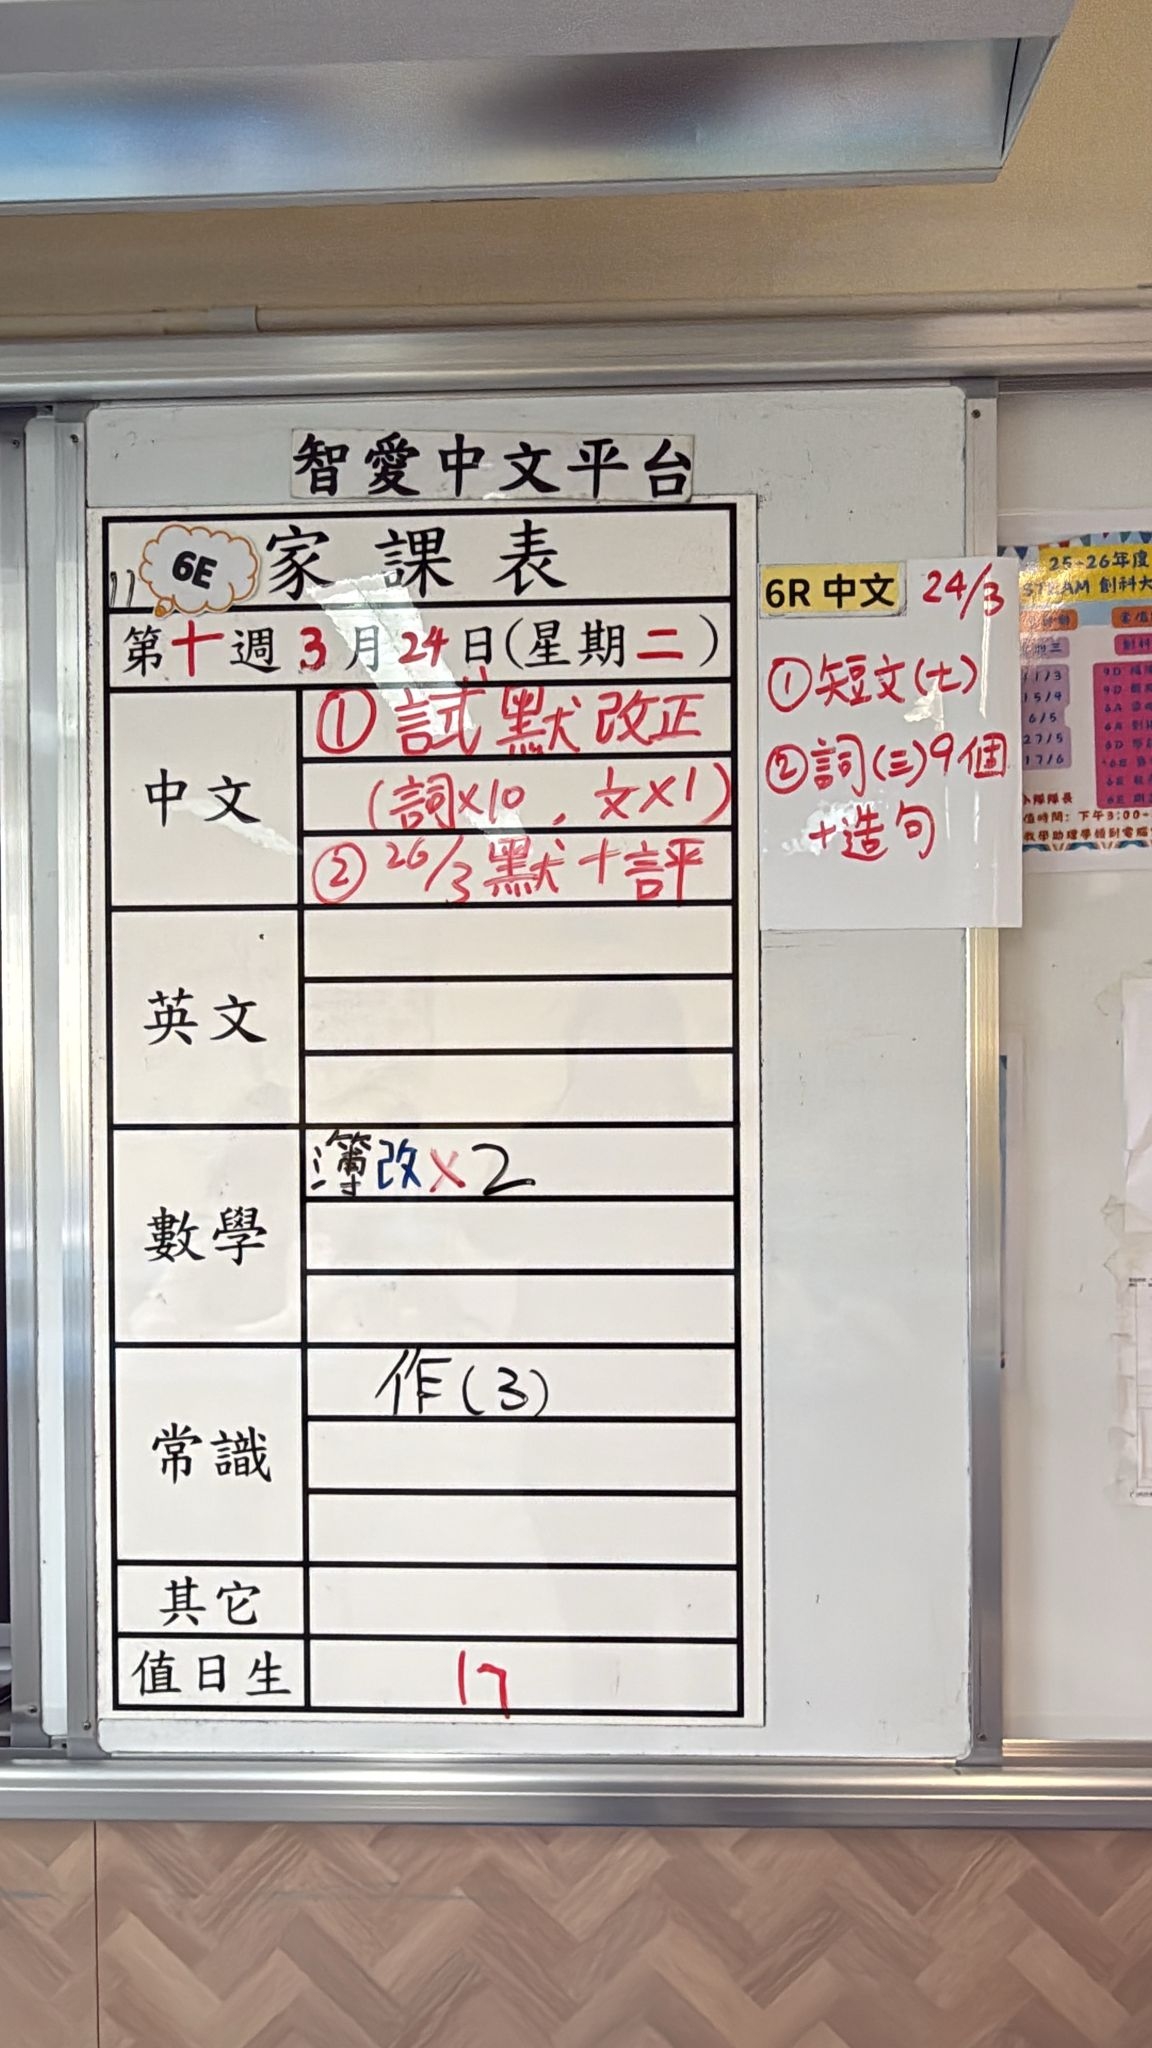 智愛中文平台
6E 家課表
第十週 3月24日(星期二)
中文
① 試默改正
(詞×10，文×1)
② 26/3 默+評
英文
數學
簿改×2
常識
作(3)
其它
值日生
17
6R 中文 24/3
①短文(七)
②詞(三)9個
+造句
25-26年度